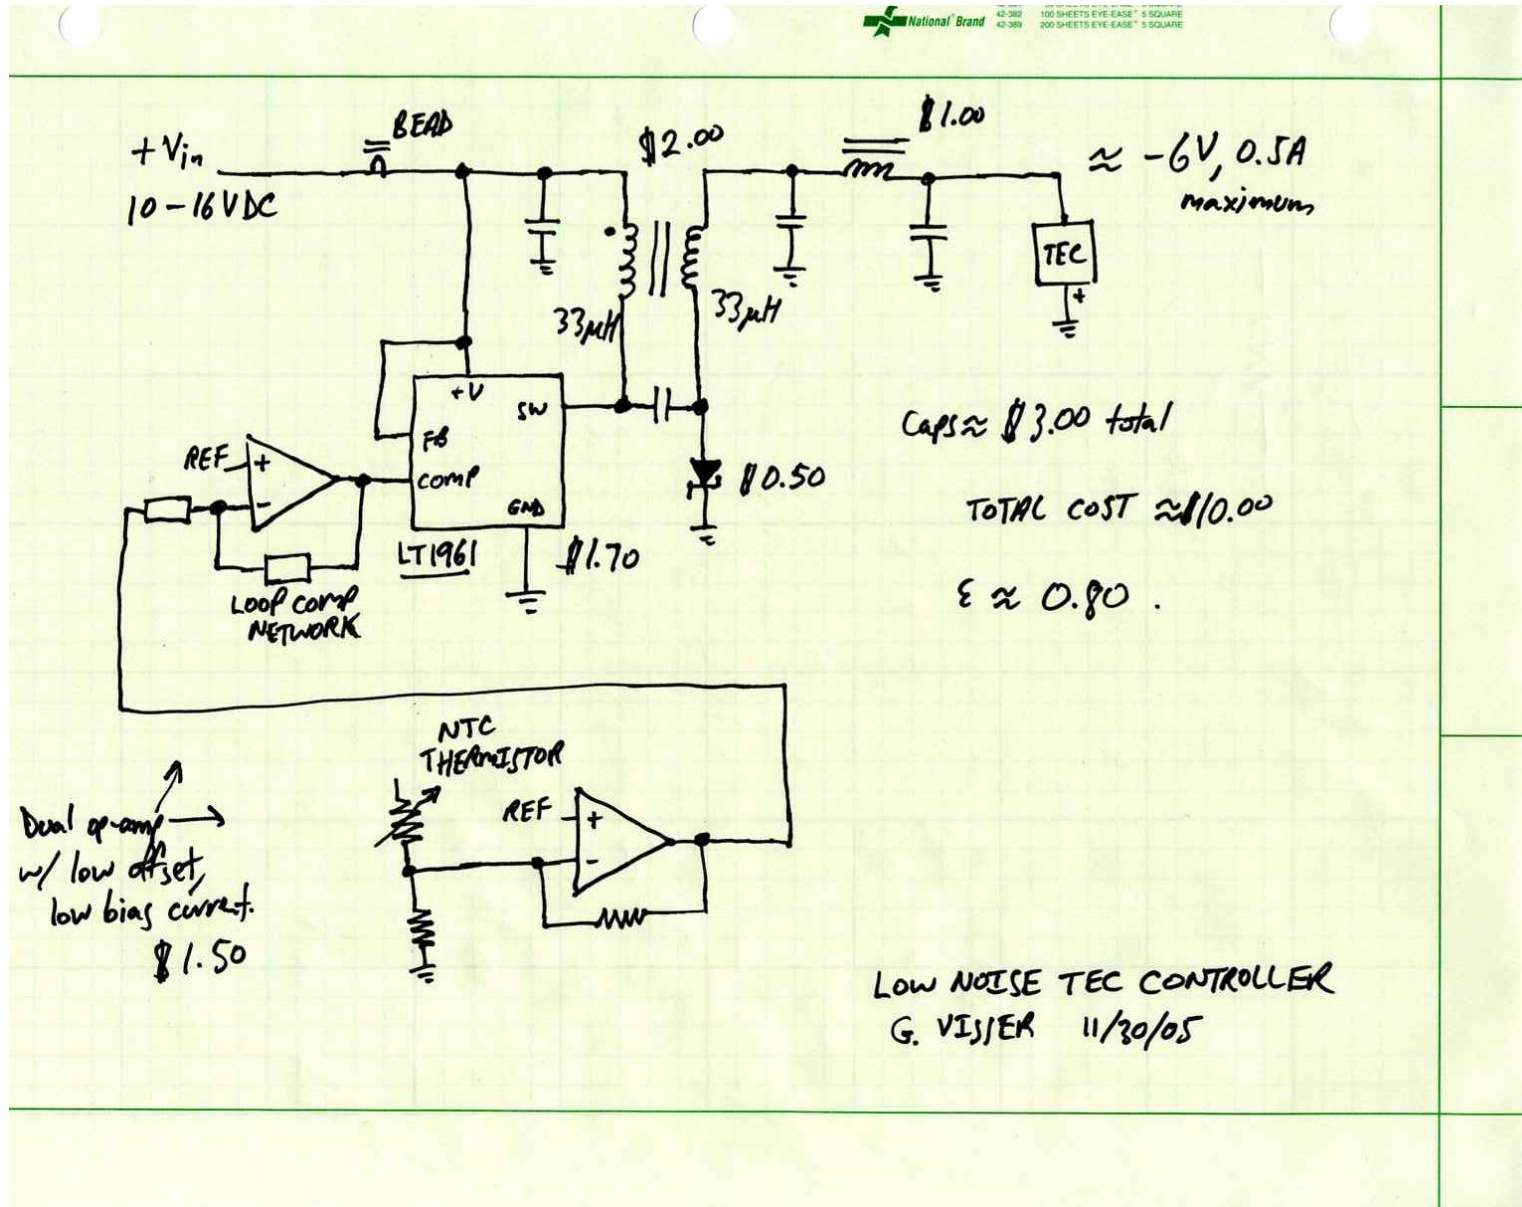 National® Brand
42-382 100 SHEETS EYE-EASE® 5 SQUARE
42-389 200 SHEETS EYE-EASE® 5 SQUARE
BEAD
+Vin
10-16VDC
$2.00
$1.00
≈ -6V, 0.5A
maximum
TEC
+
33μH
33μH
+V
SW
FB
COMP
GND
LT1961
$1.70
REF
+
-
LOOP COMP
NETWORK
$0.50
Caps ≈ $3.00 total
TOTAL COST ≈ $10.00
ε ≈ 0.80.
NTC
THERMISTOR
REF
+
-
Dual op-amp
w/ low offset,
low bias current.
$1.50
LOW NOISE TEC CONTROLLER
G. VISSER 11/30/05